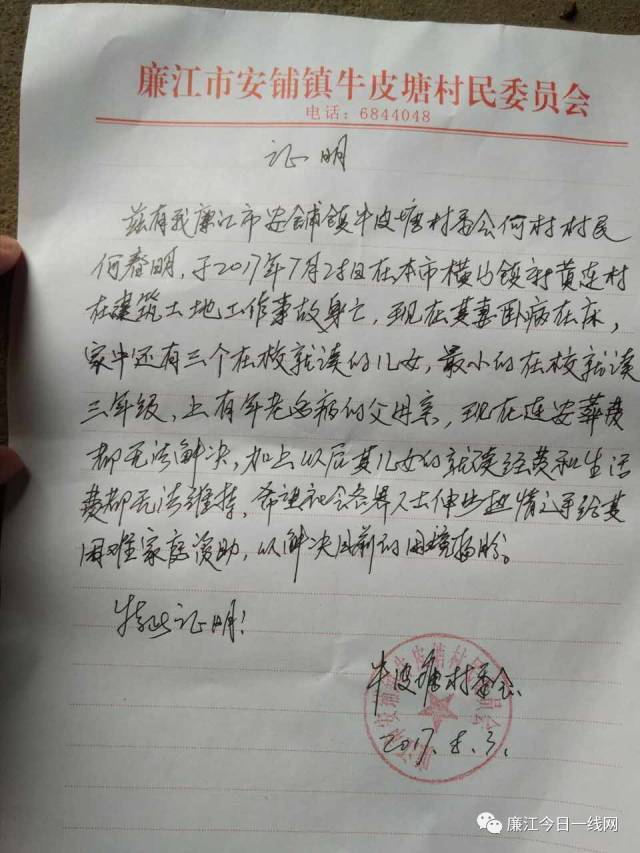 廉江市安铺镇牛皮塘村民委员会
电话：6844048
证明
兹有我廉江市安铺镇牛皮塘村委会何村村民
何春明，于2017年7月28日在本市横山镇新黄连村
在建筑土地工作事故身亡，现在其妻卧病在床，
家中还有三个在校就读的儿女，最小的在校就读
三年级，上有年老多病的父母亲，现在连安葬费
都无法解决，加上以后其儿女的就读经费和生活
费都无法维持，希望社会各界人士伸出热情之手给其
困难家庭资助，以解决目前的困境
特此证明！
牛皮塘村委会
2017.8.3.
廉江今日一线网